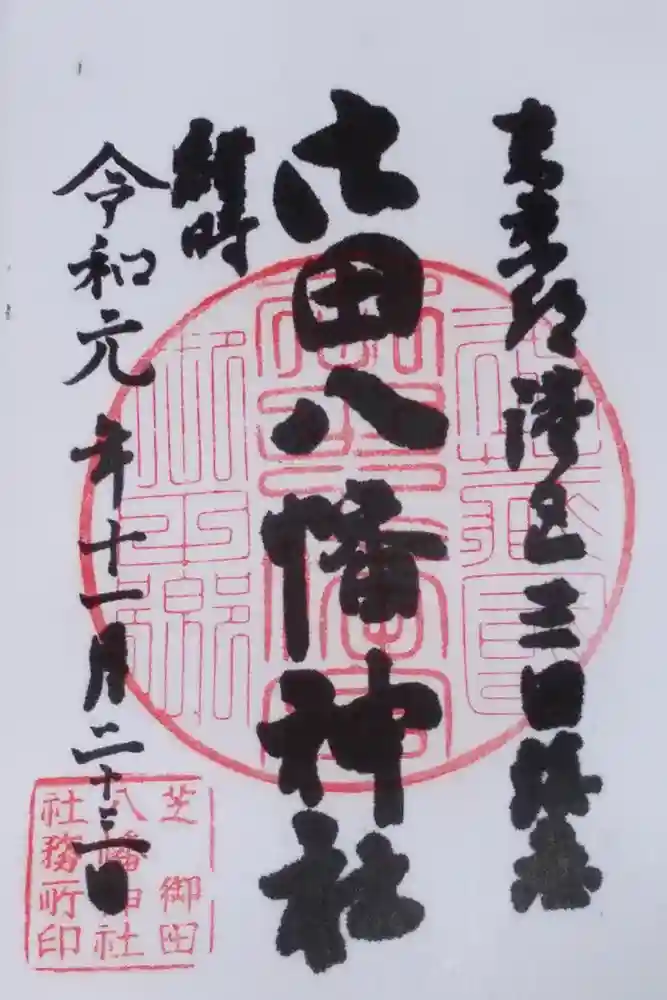 東京都港区三田鎮座
御田八幡神社
維時
令和元年十一月二十三日
芝御田
八幡神社
社務所印